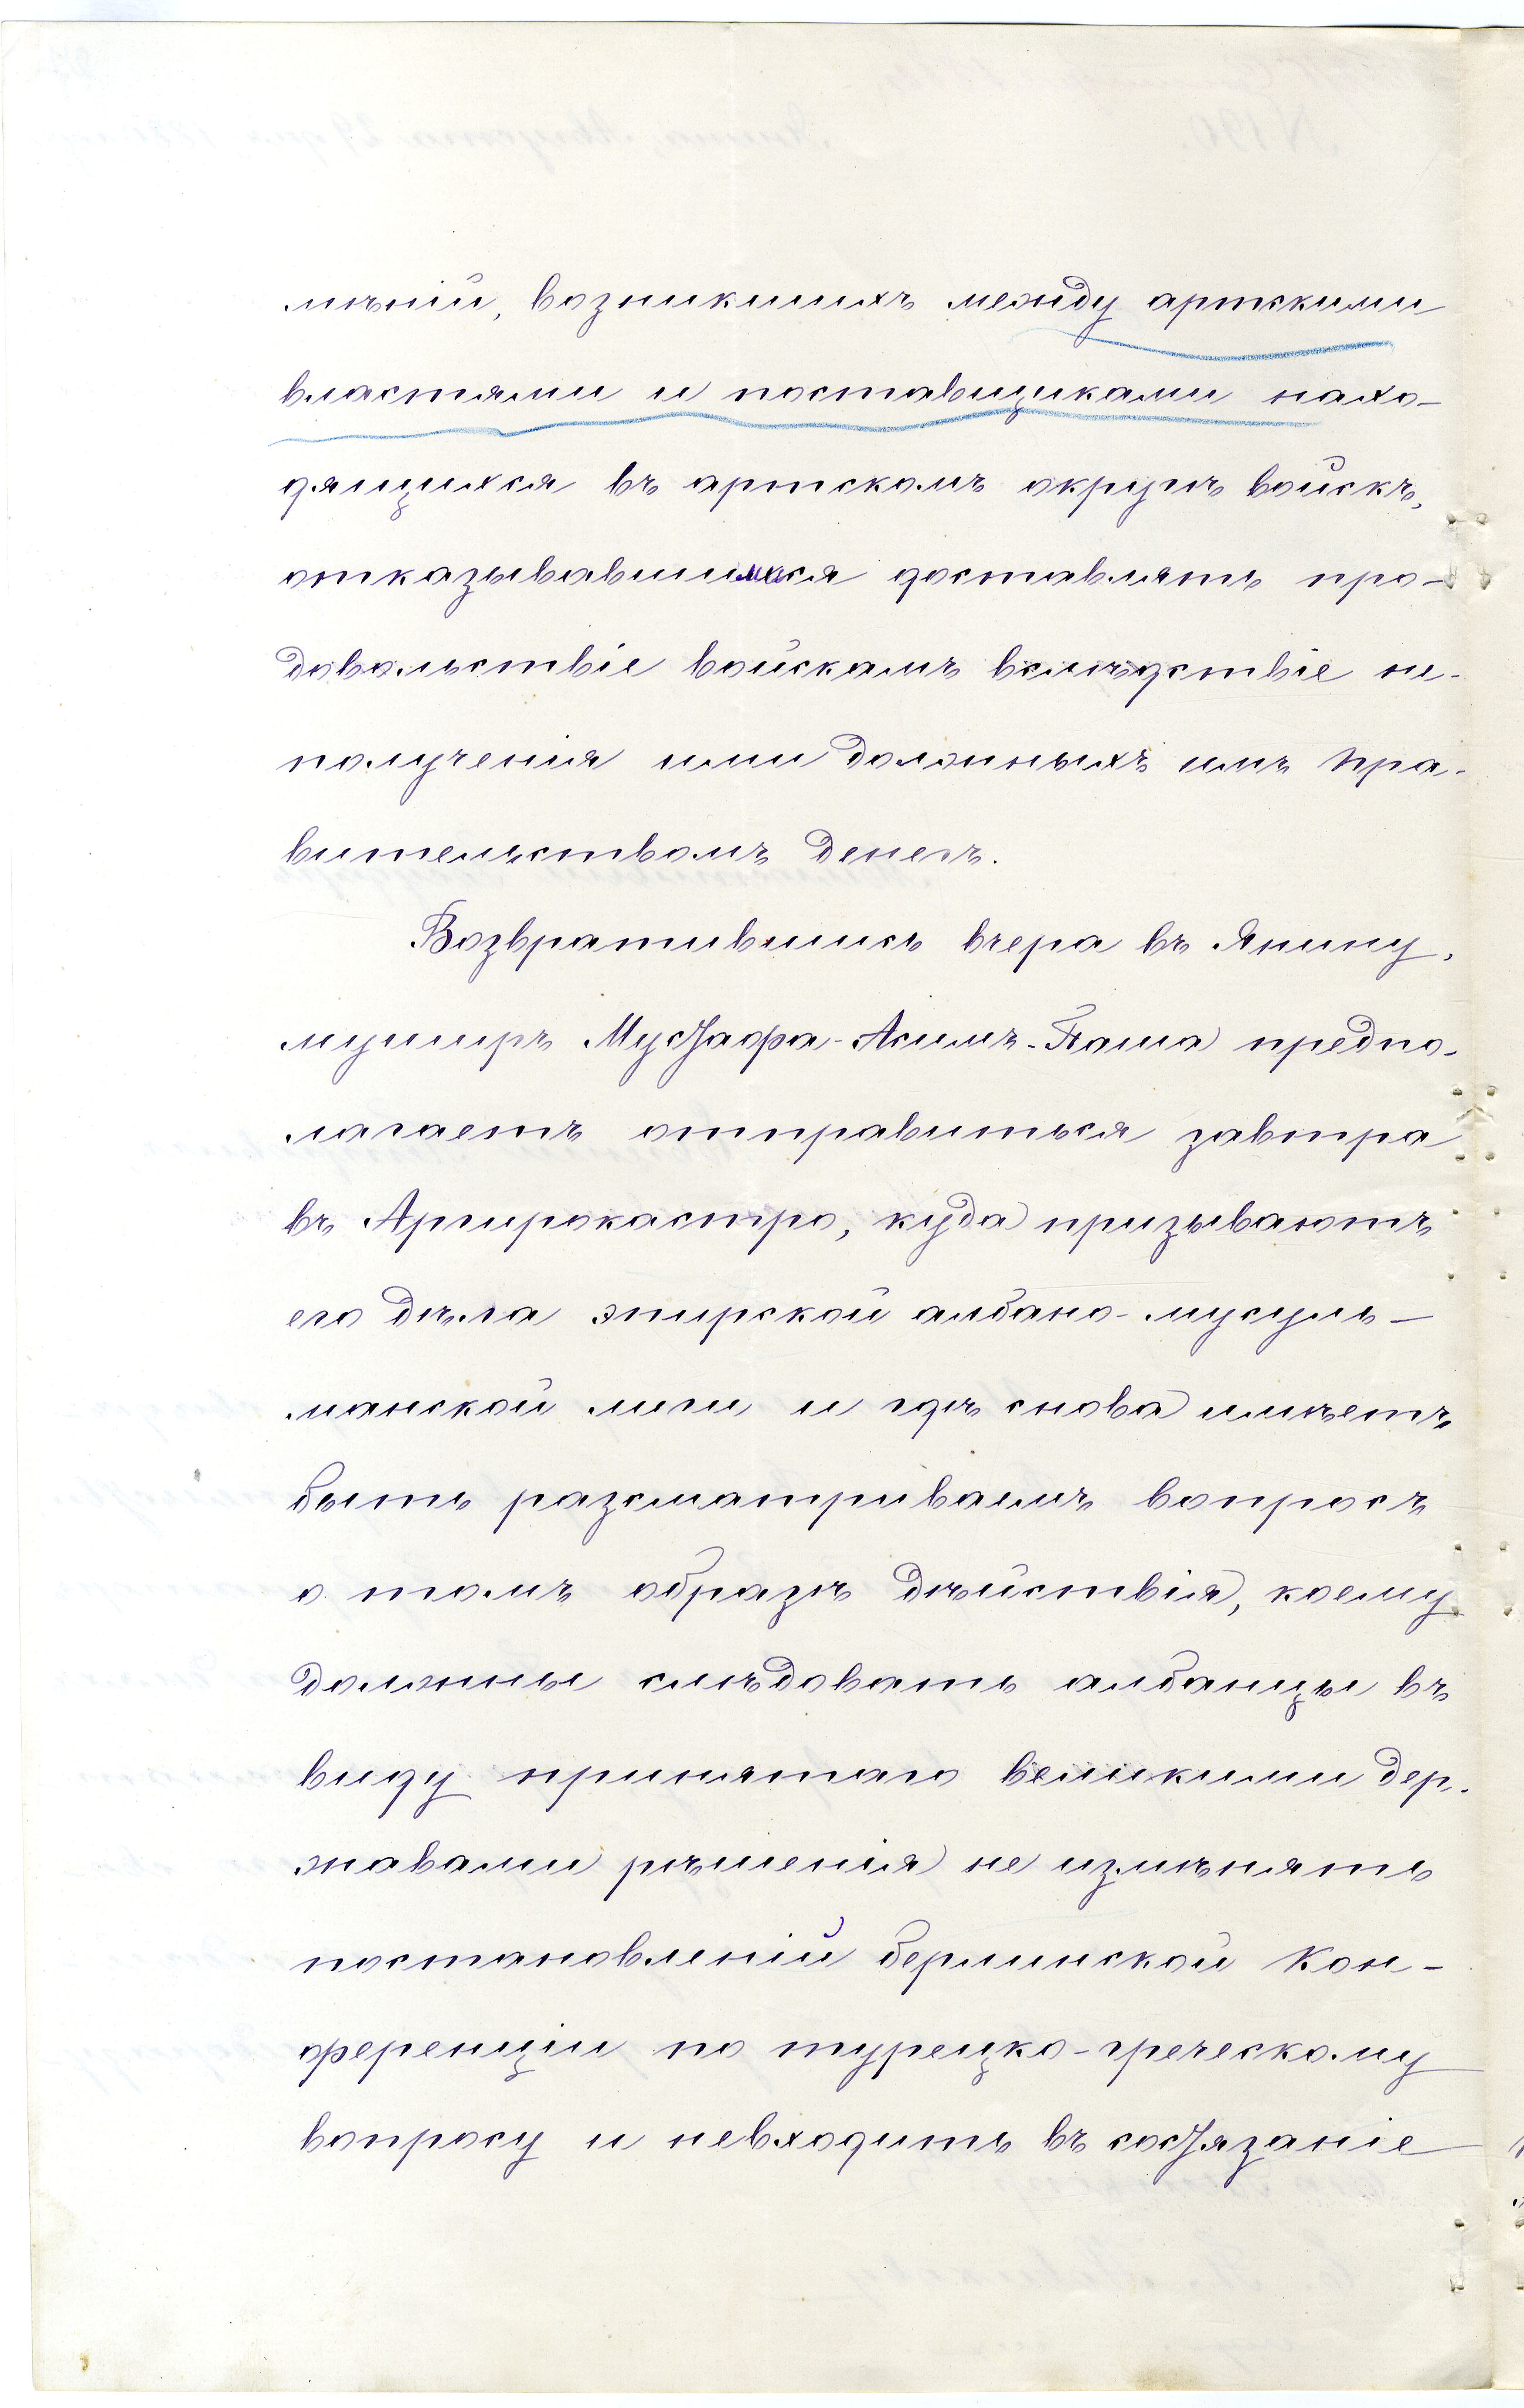 мѣній, возникшихъ между артскими
властями и поставщиками нахо-
дящихся въ артскомъ округѣ войскъ,
отказывавшимися доставлять про-
довольствіе войскамъ вслѣдствіе не-
полученія ими должныхъ имъ Пра-
вительствомъ денегъ.
Возвратившись вчера въ Янину,
муширъ Мустафа-Асимъ-Паша предпо-
лагаетъ отправиться завтра
въ Аргирокастро, куда призываютъ
его дѣла эпирской албано-мусуль-
манской лиги и гдѣ снова имѣетъ
быть разсматриваемъ вопросъ
о томъ образѣ дѣйствія, коему
должны слѣдовать албанцы въ
виду принятаго великими дер-
жавами рѣшенія не измѣнять
постановленій берлинской Кон-
ференціи по турецко-греческому
вопросу и невходить въ состязаніе